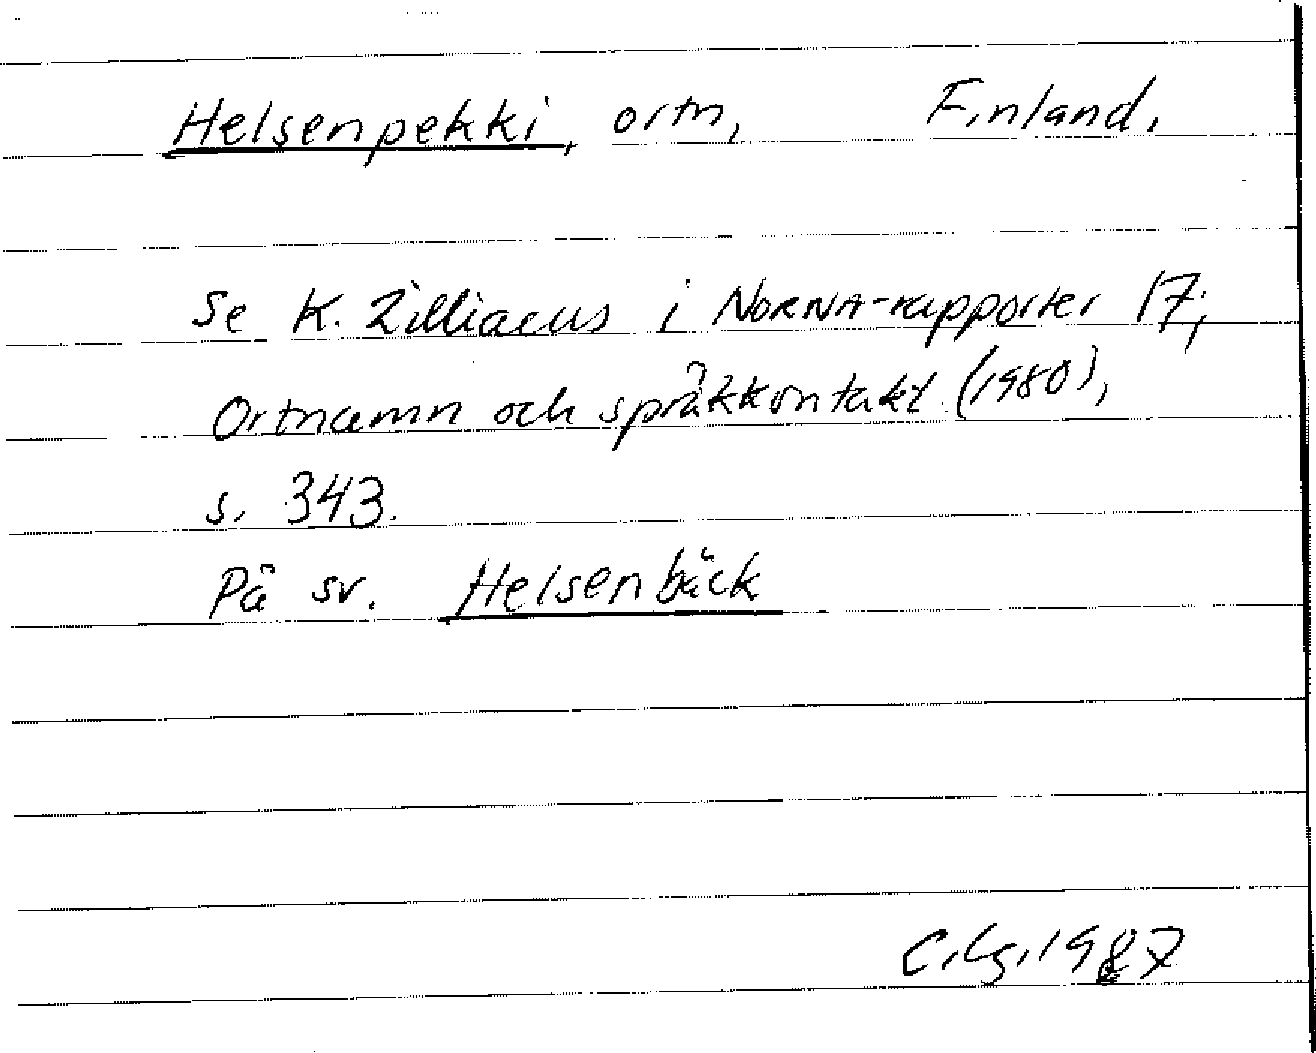 Helsenpekki, ortn, Finland.
Se K. Zilliacus i NORNA-rapporter 17;
Ortnamn och språkkontakt (1980),
s. 343.
På sv. Helsenbäck
C.Lg.1987